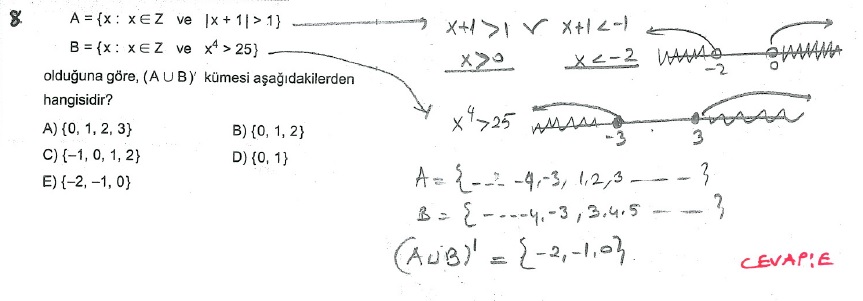 8.
A = {x : x ∈ Z ve |x + 1| > 1}
B = {x : x ∈ Z ve x⁴ > 25}
olduğuna göre, (A ∪ B)′ kümesi aşağıdakilerden
hangisidir?
A) {0, 1, 2, 3} B) {0, 1, 2}
C) {–1, 0, 1, 2} D) {0, 1}
E) {–2, –1, 0}
x+1>1 ∨ x+1<-1
x>0 x<-2
-2 0
x⁴>25
-3 3
A = {---- -4,-3, 1,2,3 --- }
B = {-----4,-3, 3,4,5 --- }
(A∪B)' = {-2,-1,0}
CEVAP:E